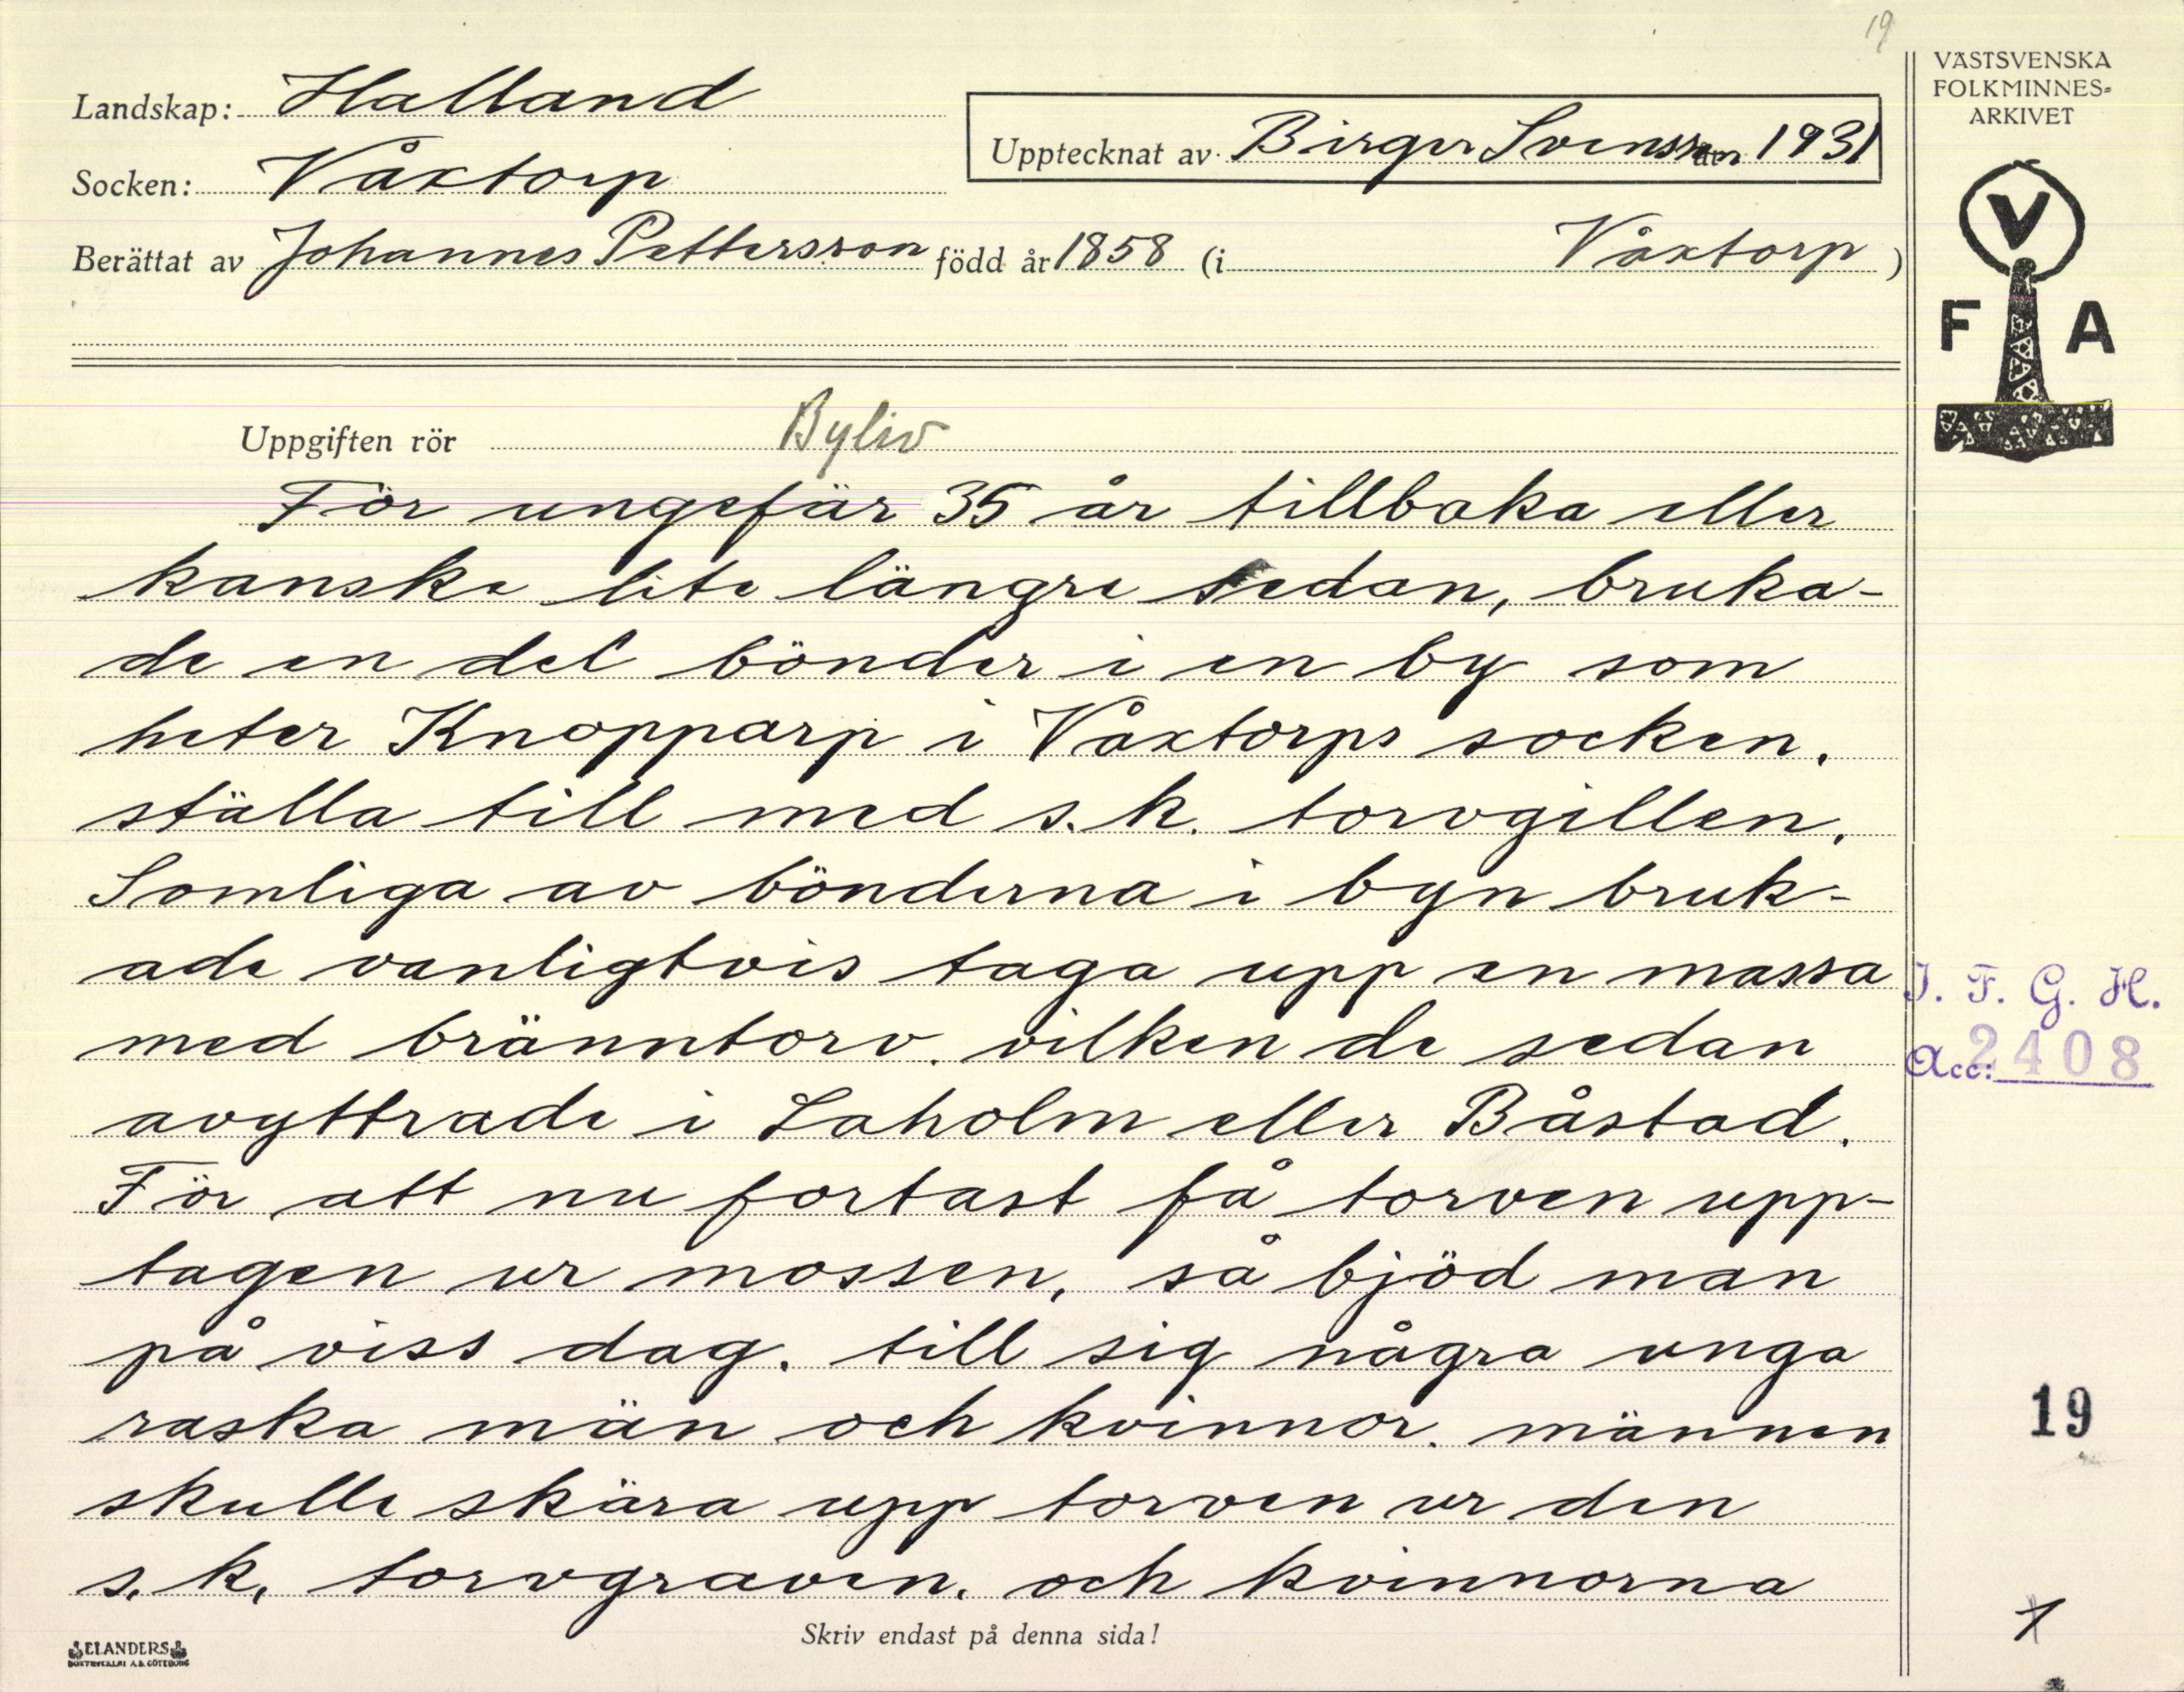 19
Landskap: Halland
Socken: Våxtorp
Berättat av Johannes Pettersson född år 1858 (i Våxtorp)
Upptecknat av Birger Svensson 1931
VÄSTSVENSKA
FOLKMINNES-
ARKIVET
V
F A
Uppgiften rör Byliv
För ungefär 35 år tillbaka eller
kanske lite längre sedan, bruka-
de en del bönder i en by som
heter Knopparp i Våxtorps socken,
ställa till med s.k. torvgillen.
Somliga av bönderna i byn bruk-
ade vanligtvis taga upp en massa
med bränntorv. vilken de sedan
avyttrade i Laholm eller Båstad.
För att nu fortast få torven upp-
tagen ur mossen, så bjöd man
på viss dag. till sig några unga
raska män och kvinnor. männen
skulle skära upp torven ur den
s.k. torvgraven. och kvinnorna
I. F. G. H.
Acc: 2408
19
1
Skriv endast på denna sida!
ELANDERS
BOKTRYCKERI A.B. GÖTEBORG